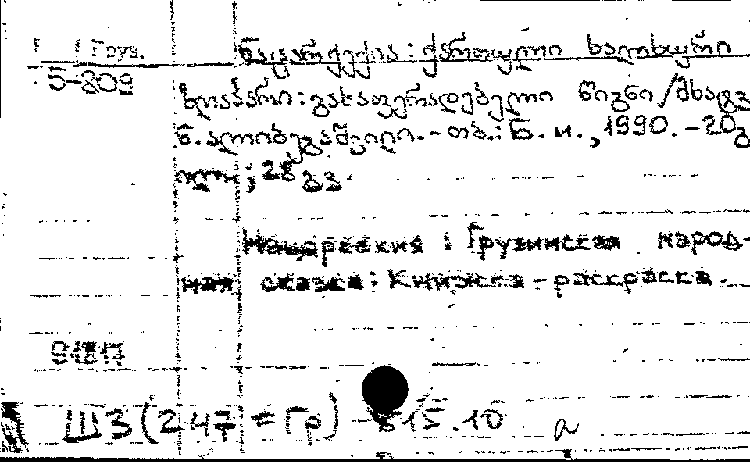 Груз. ნაცარქექია : ქართული ხალხური
5-809
ზღაპარი : გასაფერადებელი წიგნი / მხატვ
ნ. ალიბეგაშვილი. - თბ. : ნ. ი., 1990. - 20გ
; 28 გვ.
Нацаркекия : Грузинская народ-
ная сказка : Книжка - раскраска.
91817
Ш3(247=Гр) - 615.10 а